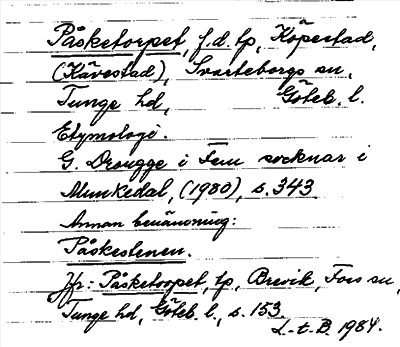 Påsketorpet, f.d. tp, Köpestad,
(Kävestad), Svarteborgs sn,
Tunge hd, Göteb. l.
Etymologi.
G. Drougge i Fem socknar i
Munkedal, (1980), s. 343
Annan benämning:
Påskestenen.
Jfr: Påsketorpet, tp, Brevik, Foss sn,
Tunge hd, Göteb. l., s. 153
L-t. B. 1984.